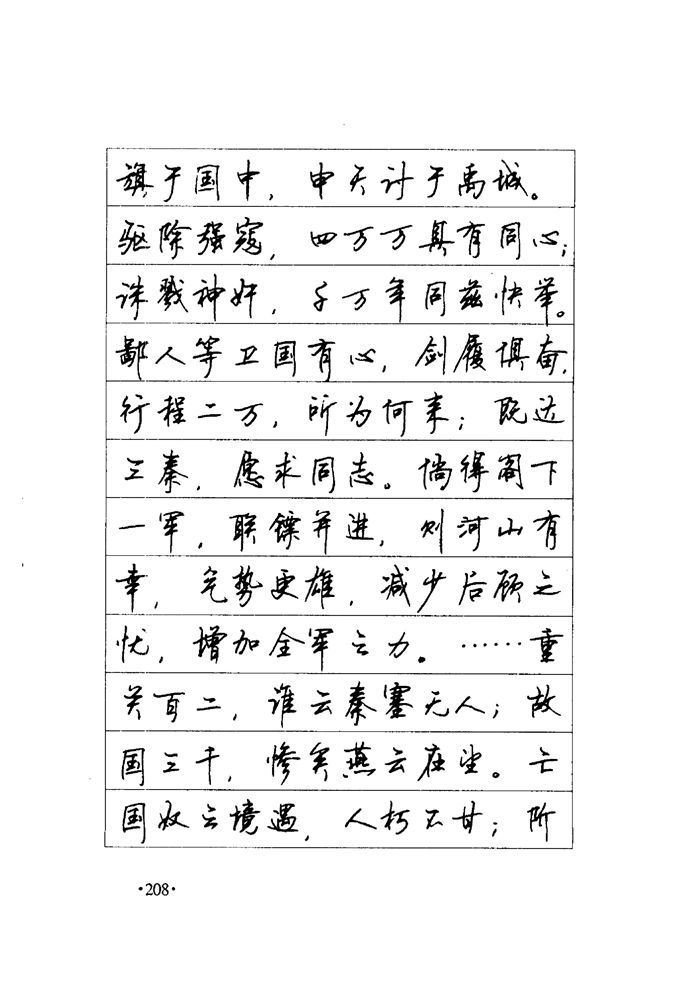 旗于国中，申天讨于禹城。
驱除强寇，四万万具有同心；
诛戮神奸，千万年同兹快举。
鄙人等卫国有心，剑履俱奋，
行程二万，所为何来；既达
三秦，愿求同志。倘得阁下
一军，联镳并进，则河山有
幸，气势更雄，减少后顾之
忧，增加全军之力。……重
关百二，谁云秦塞无人；故
国三千，惨矣燕云在望。亡
国奴之境遇，人朽不甘；阶
·208·